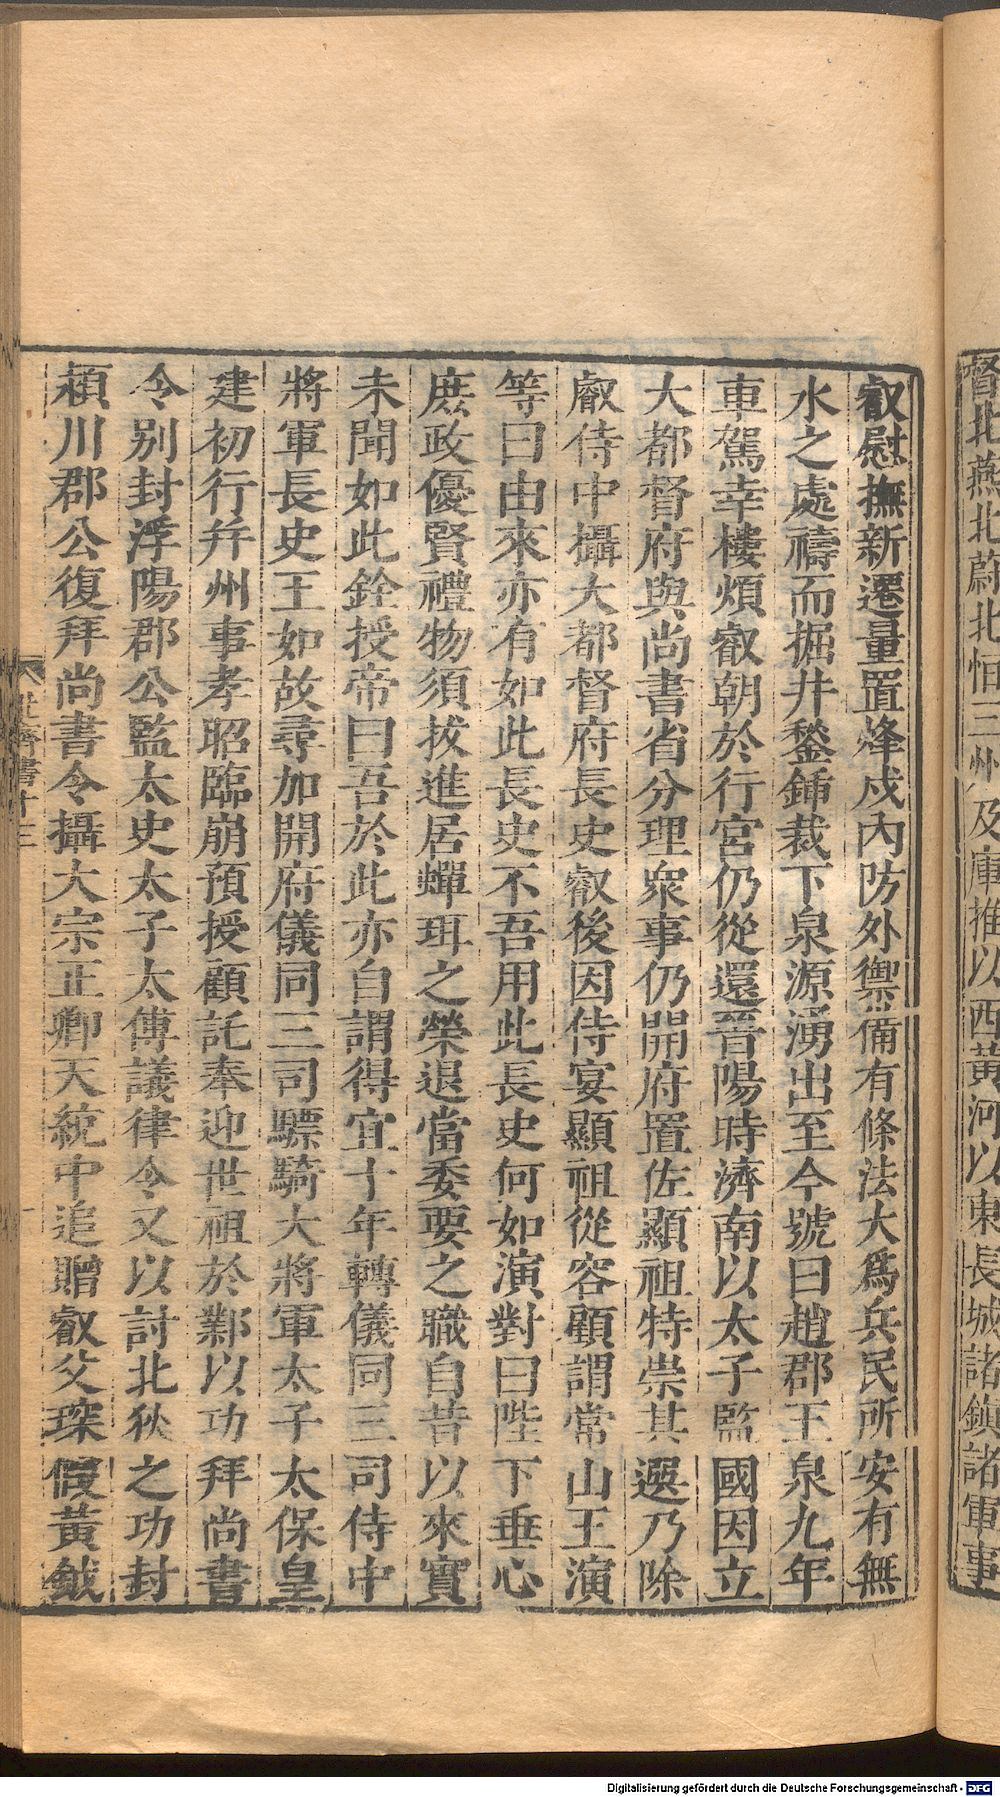 督北燕北蔚北恒三州及庫推以西黃河以東長城諸鎭諸軍事
叡慰撫新遷量置烽戍內防外禦備有條法大爲兵民所安有無
水之處禱而掘井鍫鍤裁下泉源湧出至今號曰趙郡王泉九年
車駕幸樓煩叡朝於行宮仍從還晉陽時濟南以太子監國因立
大都督府與尚書省分理衆事仍開府置佐顯祖特崇其選乃除
叡侍中攝大都督府長史叡後因侍宴顯祖從容顧謂常山王演
等曰由來亦有如此長史不吾用此長史何如演對曰陛下垂心
庶政優賢禮物須拔進居蟬珥之榮退當委要之職自昔以來實
未聞如此銓授帝曰吾於此亦自謂得宜十年轉儀同三司侍中
將軍長史王如故尋加開府儀同三司驃騎大將軍太子太保皇
建初行幷州事孝昭臨崩預授顧託奉迎世祖於鄴以功拜尚書
令別封浮陽郡公監太史太子太傅議律令又以討北狄之功封
潁川郡公復拜尚書令攝大宗正卿天統中追贈叡父琛假黃鉞
Digitalisierung gefördert durch die Deutsche Forschungsgemeinschaft - DFG